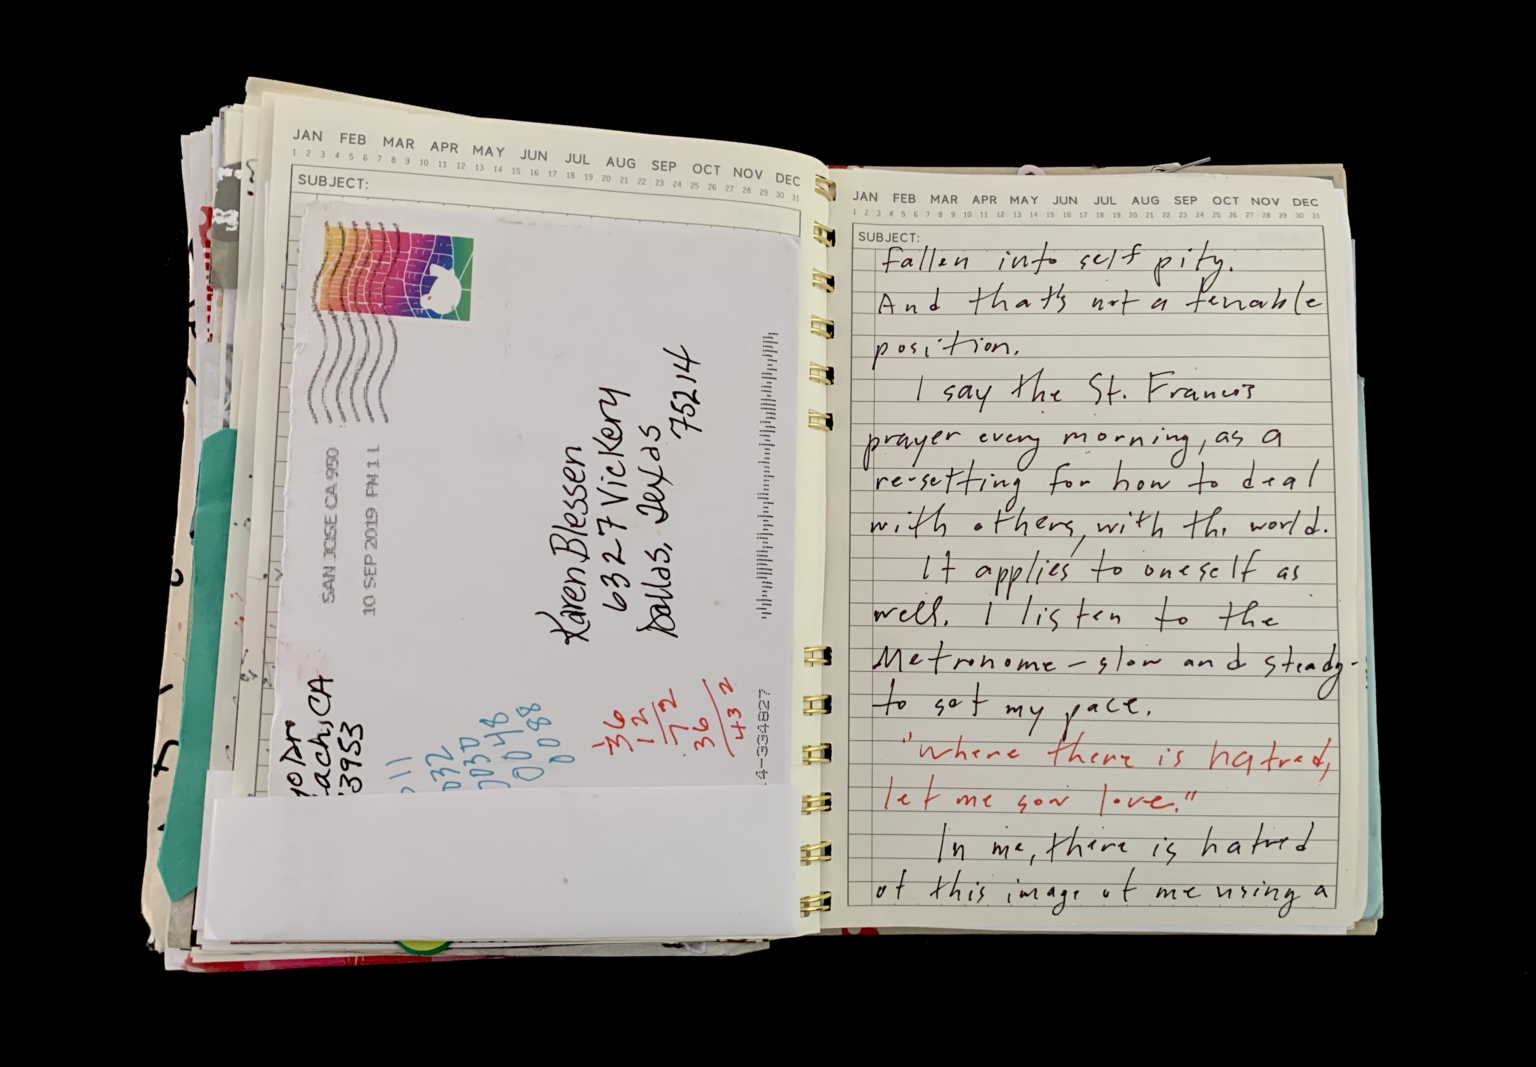 JAN FEB MAR APR MAY JUN JUL AUG SEP OCT NOV DEC
1 2 3 4 5 6 7 8 9 10 11 12 13 14 15 16 17 18 19 20 21 22 23 24 25 26 27 28 29 30 31
SUBJECT:
SAN JOSE CA 950
10 SEP 2019 PM 1 L
Karen Blessen
6327 Vickery
Dallas, Texas
75214
Dr
each, CA
3953
11
032
0030
0048
0088
36
12
72
36
432
4-334827
JAN FEB MAR APR MAY JUN JUL AUG SEP OCT NOV DEC
1 2 3 4 5 6 7 8 9 10 11 12 13 14 15 16 17 18 19 20 21 22 23 24 25 26 27 28 29 30 31
SUBJECT:
fallen into self pity.
And that's not a tenable
position.
I say the St. Francis
prayer every morning, as a
re-setting for how to deal
with others, with the world.
It applies to oneself as
well. I listen to the
Metronome - slow and steady -
to set my pace.
"Where there is hatred,
let me sow love."
In me, there is hatred
of this image of me using a